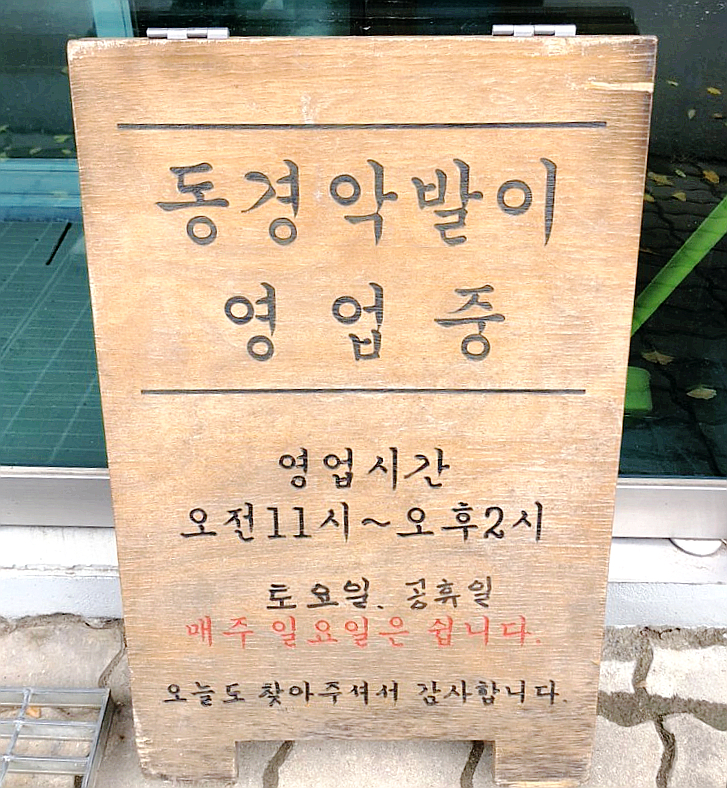 동경악발이
영업중
영업시간
오전11시~오후2시
토요일. 공휴일
매주 일요일은 쉽니다.
오늘도 찾아주셔서 감사합니다.